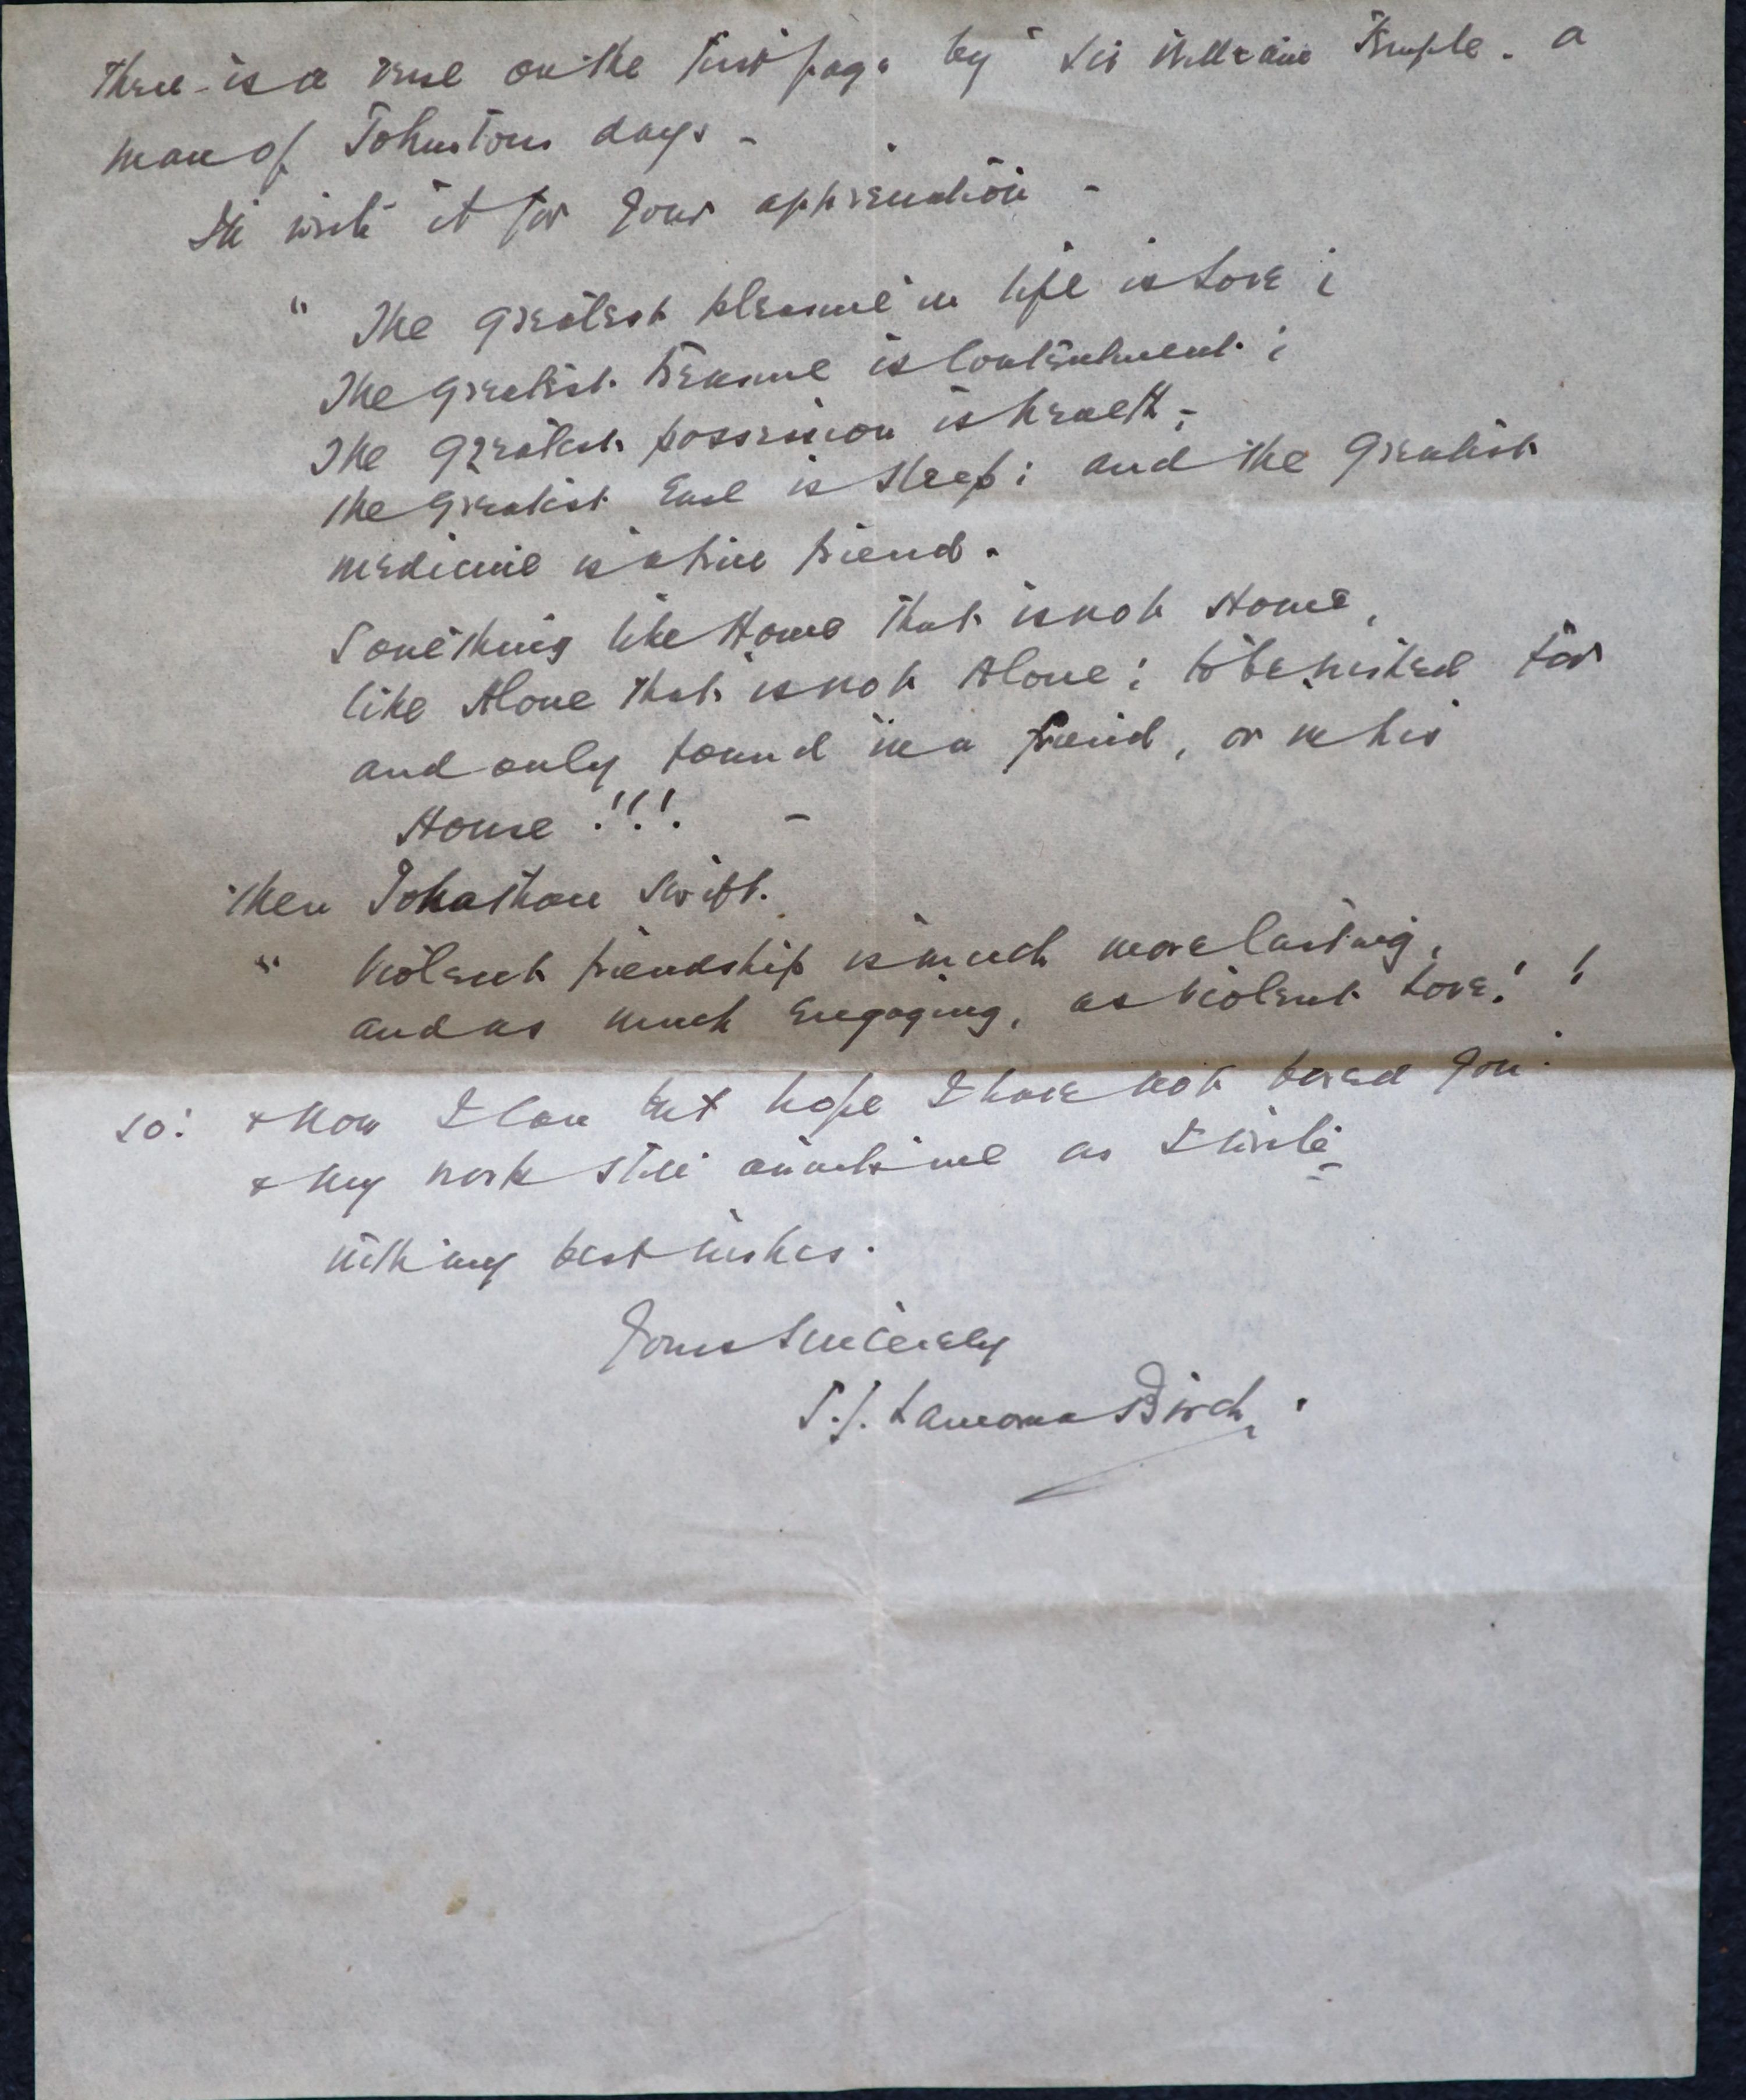 There is a verse on the first page by Sir William Temple - a
man of Johnstons days -
I'll write it for your appreciation -
" The greatest pleasure in life is Love ;
The greatest treasure is Contentment ;
The greatest possession is health ;
the greatest Ease is Sleep ; and the greatest
medicine is a true friend .
Something like Home that is not Home ,
like Alone that is not Alone ; to be wished for
and only found in a friend , or in his
House !!! -
Then Johathan Swift .
" Violent friendship is much more lasting ,
and as much engaging , as violent Love ! !
so ! & now I can but hope I have not bored you .
& my work still awaits me as I write
with my best wishes .
Yours Sincerely
S. J. Lamorna Birch .